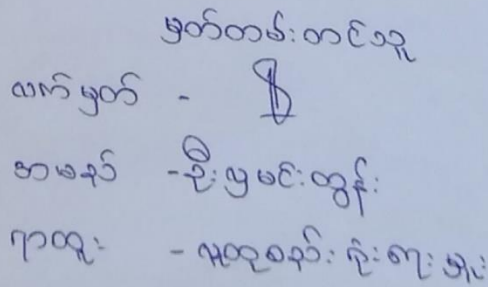 မှတ်တမ်းတင်သူ
လက်မှတ် -
အမည် - ဦးလှမင်းထွန်း
ရာထူး - လူထုစည်းရုံးရေးမှူး